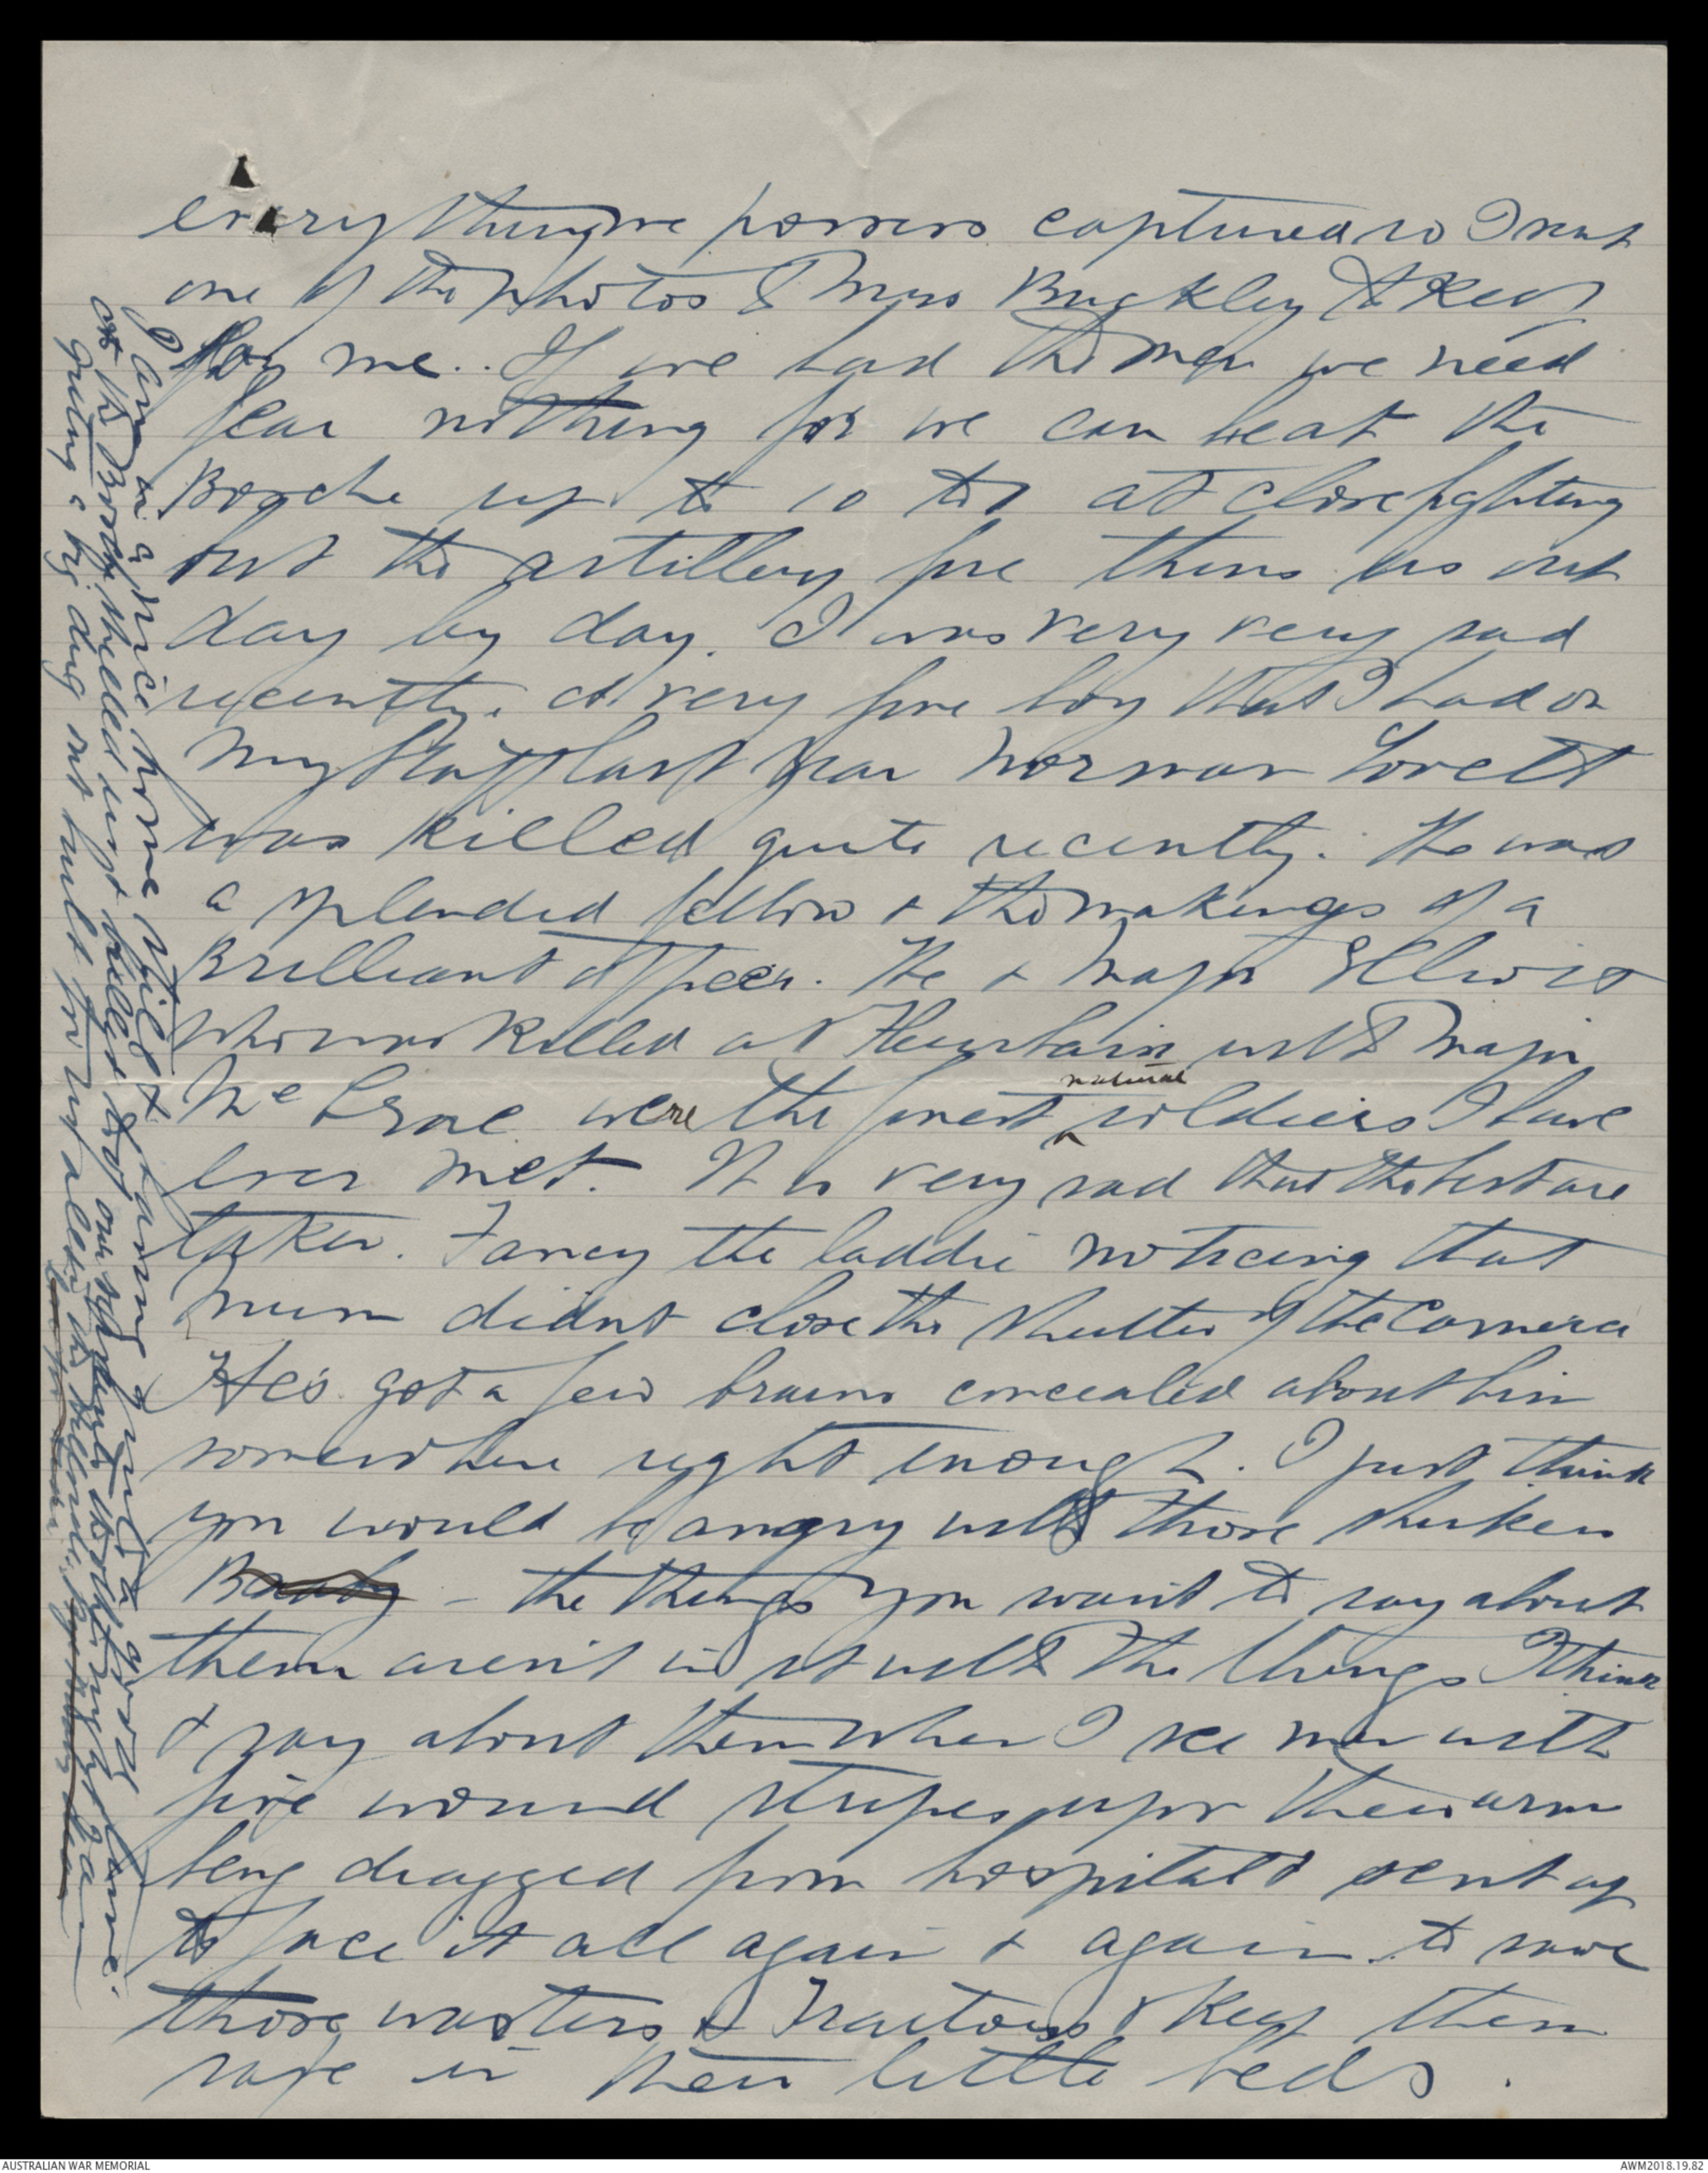 everything we possess captured so I sent
one of the photos to Miss Buckley to keep
for me. If we had the men we need
fear nothing for we can beat the
Bosche up to 10 to 1 at close fighting
but the artillery fire thins us out
day by day. I was very very sad
recently. A very fine boy that I had on
my staff last year Norman Lovett
was killed quite recently. He was
a splendid fellow & the makings of a
Brilliant officer. He & Major Elliott
who was killed at Fleurbaix with Major
McCrae were the finest natural soldiers I have
ever met. It is very sad that the best are
taken. Fancy the laddie noticing that
Mum didnt close the shutter of the Camera
He's got a few brains concealed about him
somewhere right enough. I just think
you would be angry with those shirkers
- the things you want to say about
them aren't in it with the things I think
& say about them when I see men with
five wound stripes upon their arm
being dragged from hospital & sent up
to face it all again & again to save
those wasters & Traitors & keep them
safe in their little beds.
I am in a nice home built & going
at the Bosche shelled our
a big dug out built for us all
AUSTRALIAN WAR MEMORIAL
AWM2018.19.82